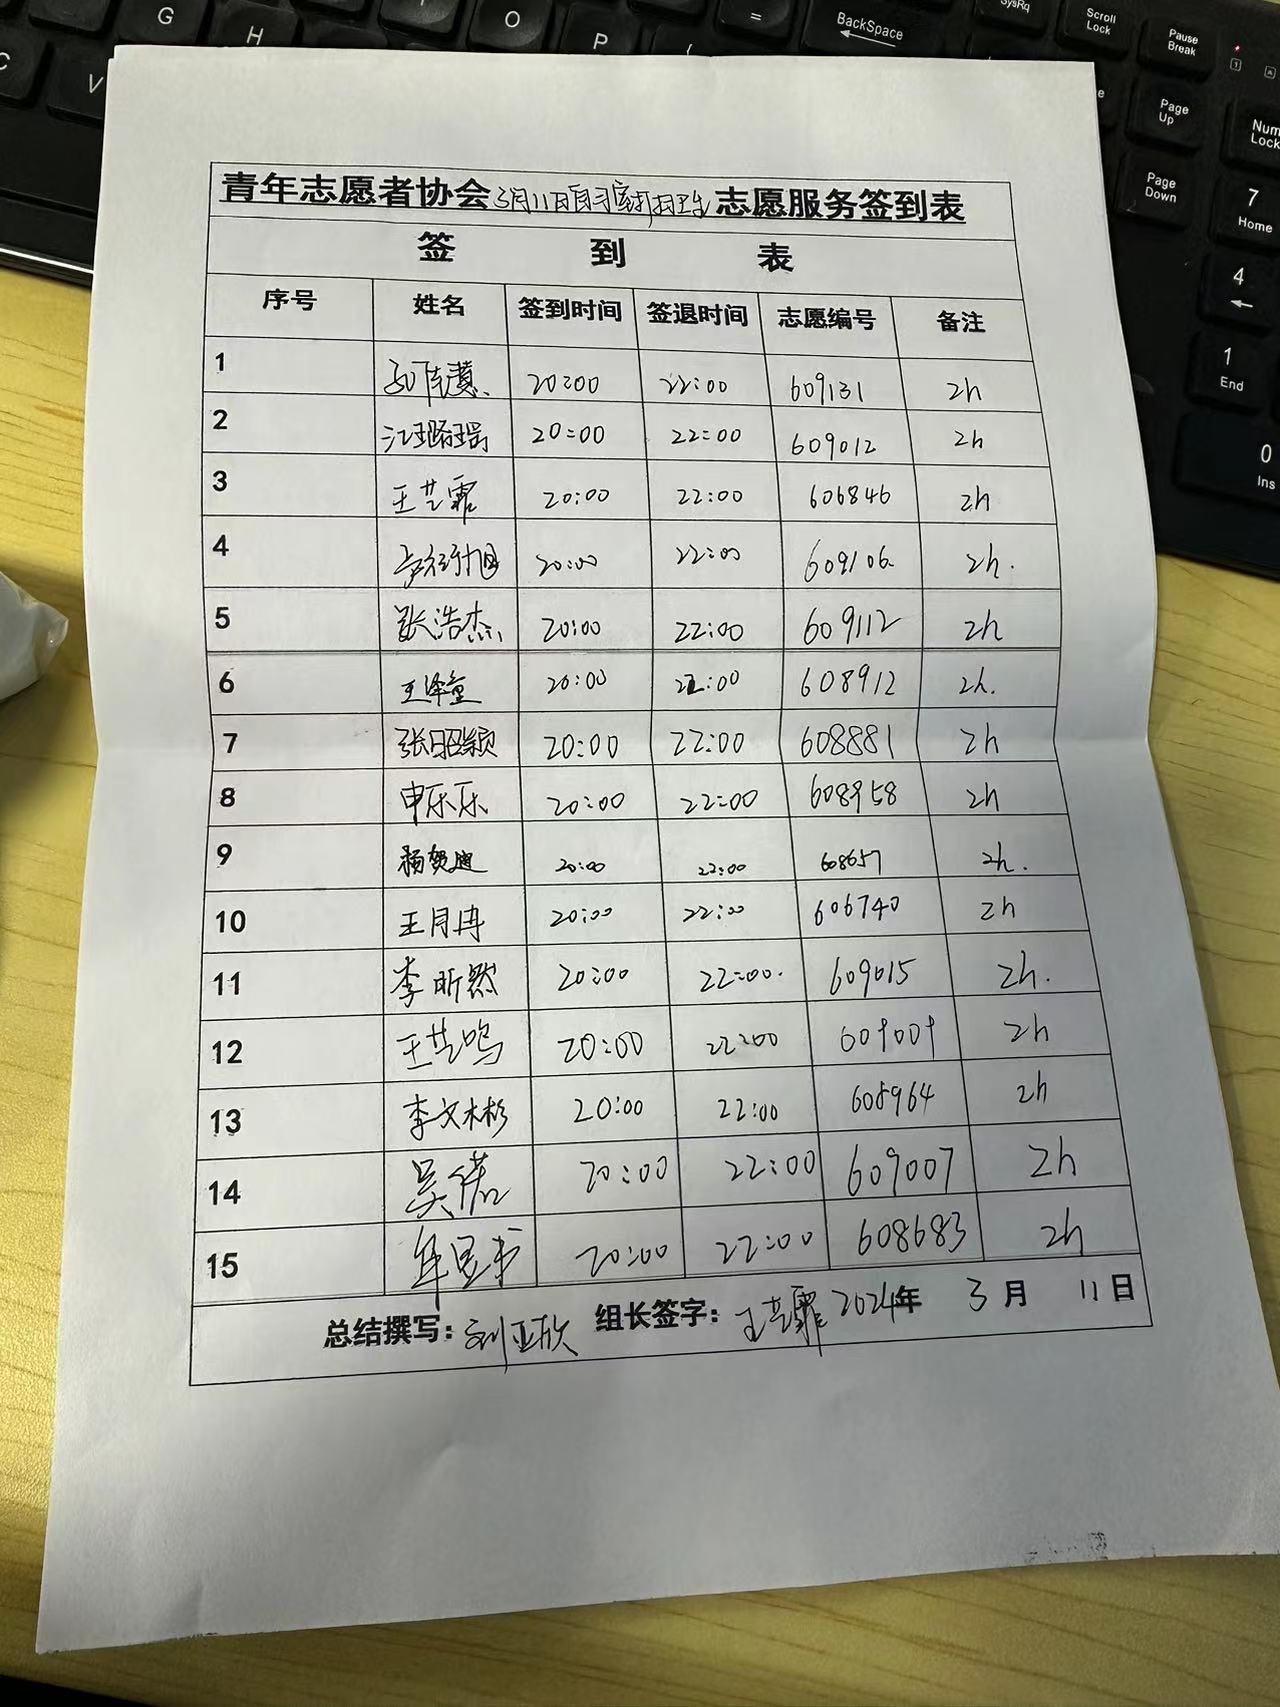 G
H
O
P
=
BackSpace
SysRq
Scroll Lock
Pause Break
C
V
Page Up
Num Lock
Page Down
7 Home
4
1 End
0 Ins
青年志愿者协会3月11日自习室打扫卫生志愿服务签到表
签 到 表
序号 姓名 签到时间 签退时间 志愿编号 备注
1 20:00 22:00 609131 2h
2 江璐瑶 20:00 22:00 609012 2h
3 王艺霏 20:00 22:00 606846 2h
4 20:00 22:00 609106 2h.
5 张浩杰 20:00 22:00 609112 2h
6 王泽童 20:00 22:00 608912 2h.
7 张昭颖 20:00 22:00 608881 2h
8 申乐乐 20:00 22:00 608958 2h
9 杨贺迪 20:00 22:00 608657 2h.
10 王月冉 20:00 22:00 606740 2h
11 李昕然 20:00 22:00. 609015 2h.
12 王艺鸣 20:00 22:00 609009 2h
13 李文彬 20:00 22:00 608964 2h
14 吴偌 20:00 22:00 609007 2h
15 20:00 22:00 608683 2h
总结撰写：刘亚欣 组长签字：王艺霏 2024年 3月 11日